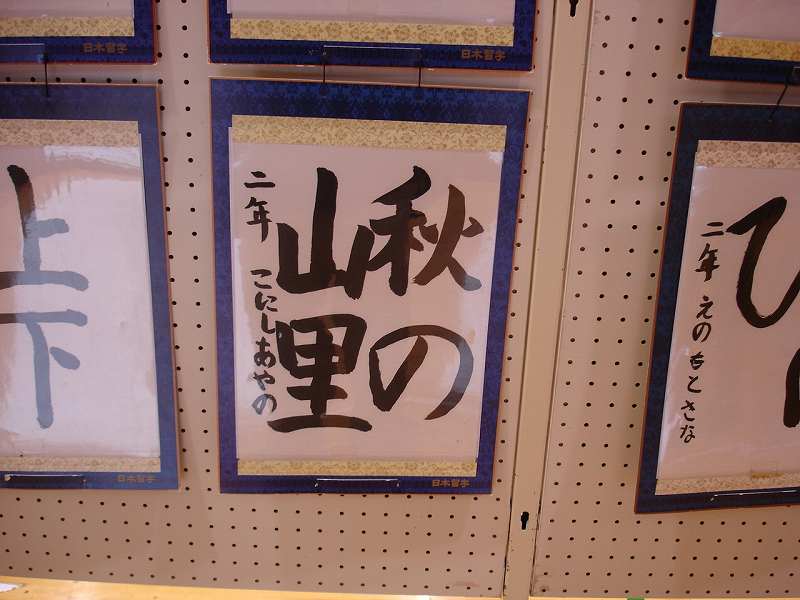 日本習字
日本習字
上下
日本習字
秋の
山里
二年 こにしあやの
日本習字
ひ
二年 えのもとさな